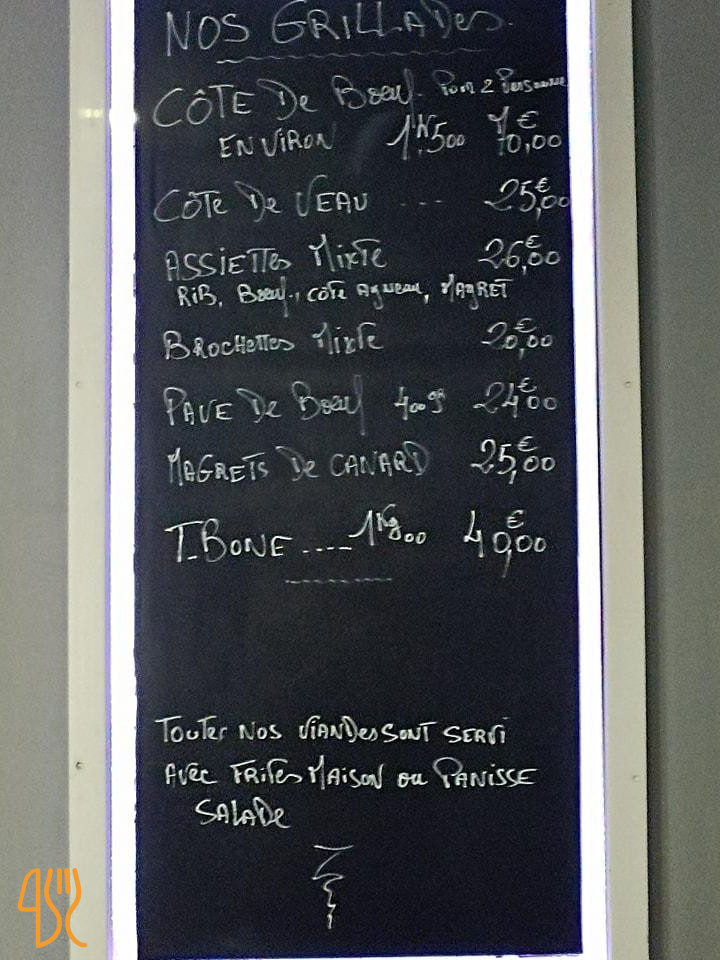 NOS GRILLADES.
CÔTE De Bœuf. Pour 2 Personne
ENVIRON 1K,500 70,00€
CÔTe De VEAU .... 25,00€
ASSIETTes MIXTE 26,00€
RIB, Bœuf., CÔTe Agneau, MAGRET
BROCHETTes MIXTe 20,00€
PAVE De Bœuf 400gr 24,00€
MAGRETS De CANARD 25,00€
T-BONE .... 1Kg00 40,00€
TouTes NOS VIANDes SONT SERVI
AVEC FRITES MAISON ou PANISSE
SALADe